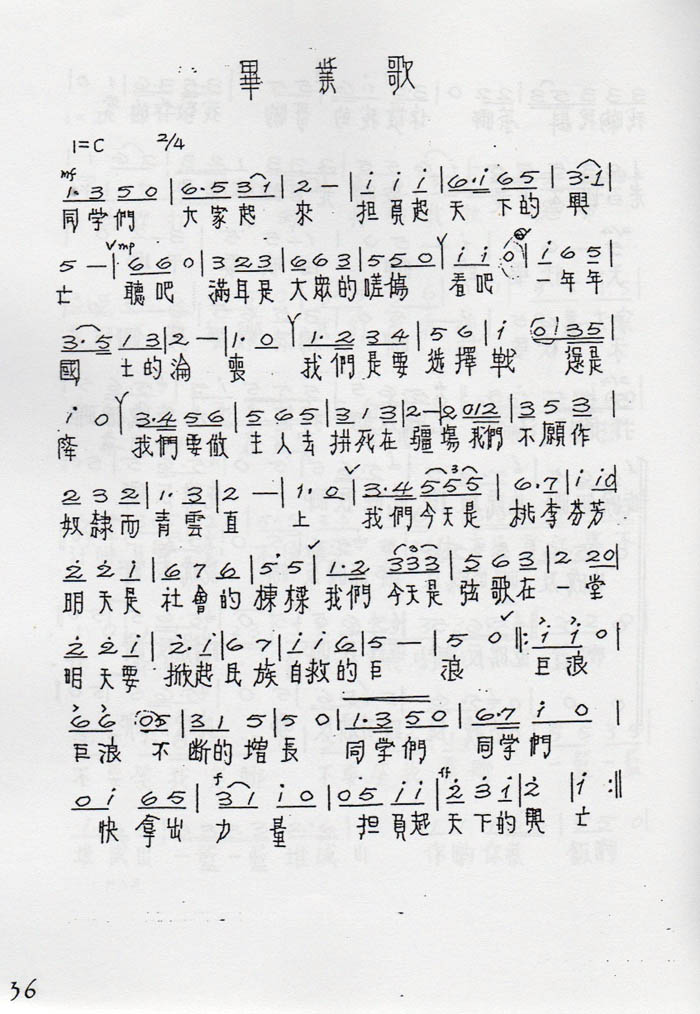 畢業歌
1=C 2/4
mf
1·3 5 0 | 6·5 3 1 | 2 — | i i i | 6·i 6 5 | 3·1 |
同学們 大家起 來 担負起 天 下的 興
mp
5 — | 6 6 0 | 3 2 3 | 6 6 3 | 5 5 0 | i i 0 | i 6 5 |
亡 聽吧 滿耳是 大眾的嗟傷 看吧 一年年
3·5 1 3 | 2 — | 1· 0 | 1·2 3 4 | 5 6 | i 0 i 3 5 |
國 土的淪 喪 我們是要 選擇戰 還是
i 0 | 3·4 5 6 | 5 6 5 | 3 1 3 | 2 — | 2 0 1 2 | 3 5 3 |
降 我們要做 主人去 拼死在疆場我們 不願作
2 3 2 | 1· 3 | 2 — | 1· 0 | 3·4 5 5 5 | 6·7 | i i 0 |
奴隸而青雲直 上 我們今天是 桃李芬芳
2 2 i | 6 7 6 | 5 5 | 1·2 3 3 3 | 5 6 3 | 2 2 0 |
明天是 社會的棟樑我們 今天是弦歌在 堂
2 2 i | 2·i | 6 7 | i i 6 | 5 — | 5 0 ‖: i i 0 |
明天要 掀起民族自救的巨 浪 巨浪
6 6 0 5 | 3 1 5 | 5 0 | 1·3 5 0 | 6·7 i 0 |
巨浪 不 断的增長 同学們 同学們
f ff
0 i 6 5 | 3 i i 0 | 0 5 i i | 2 3 1 | 2 | i :‖
快 拿出 力 量 担負起天下的興 亡
36